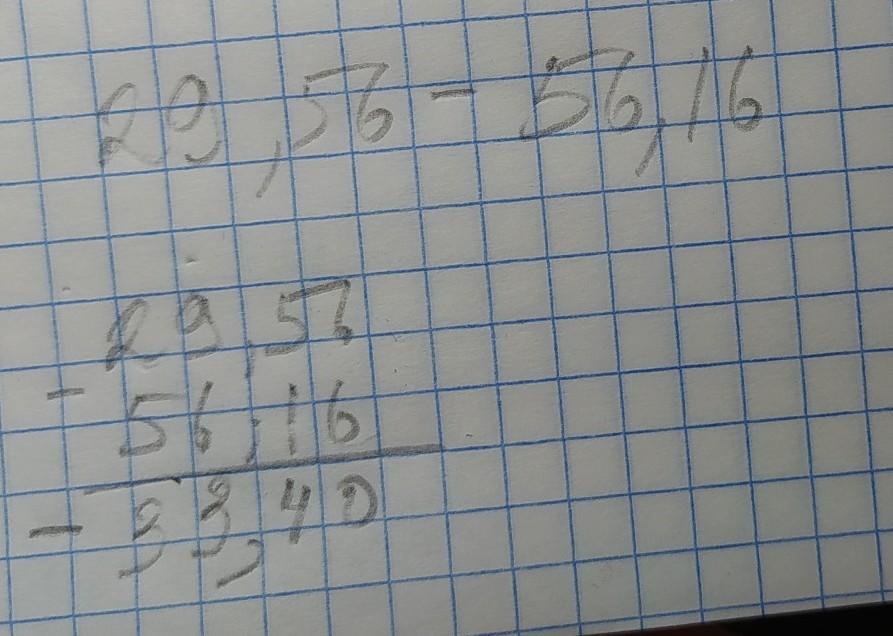 29,56 - 56,16
29,56
-
56,16
- 33,40